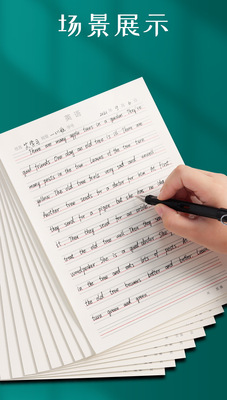 场景展示
英语
There are many apple trees in a garden. They're
good friends. One day an old tree is ill. There are
many pests in the tree. Leaves of the tree turn
yellow. The old tree feels very sad and unwell.
Another tree sends for a doctor for him. At first,
they send for a pigeon, but she has no idea
it. Then they send for an
treat the old tree well. Then they send
woodpecker. She is a good doctor. She
in the tree and eats lots of pests. At
the old tree becomes better and better. Leaves
turn green and green.